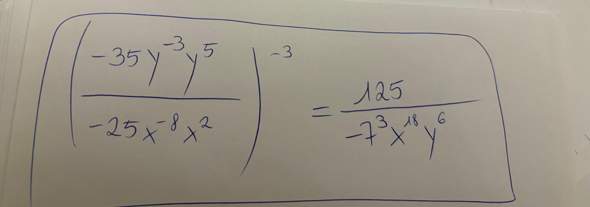 (-35y⁻³y⁵ / -25x⁻⁸x²)⁻³ = 125 / -7³x¹⁸y⁶